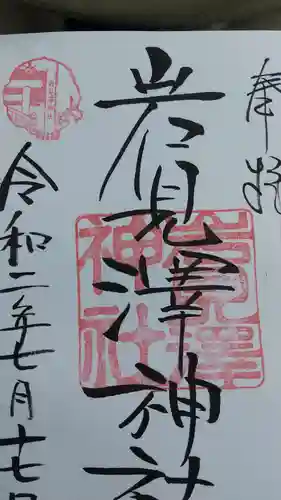 奉拝
岩見澤神社
岩見澤神社
令和二年七月十七日